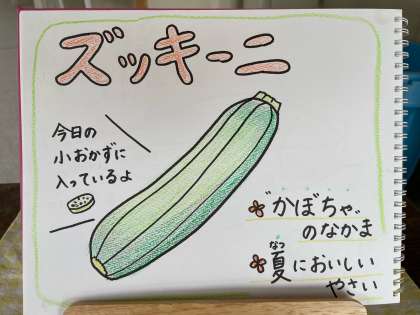 ズッキーニ
今日の
小おかずに
入っているよ
"かぼちゃ"
のなかま
なつ
夏においしい
やさい